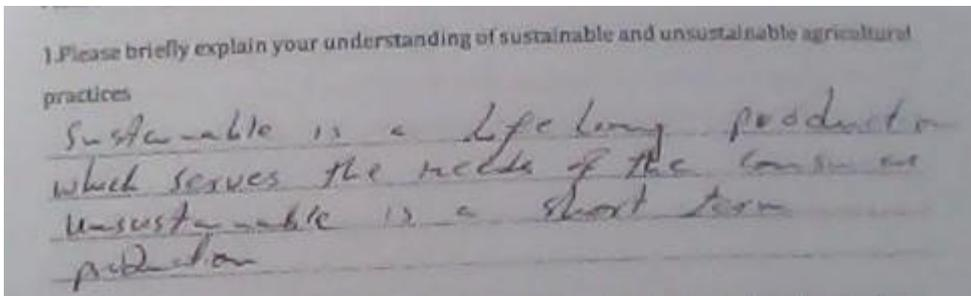 1.Please briefly explain your understanding of sustainable and unsustainable agricultural
practices
Sustainable is a life long production
which serves the needs of the consumer
Unsustainable is a short term
production